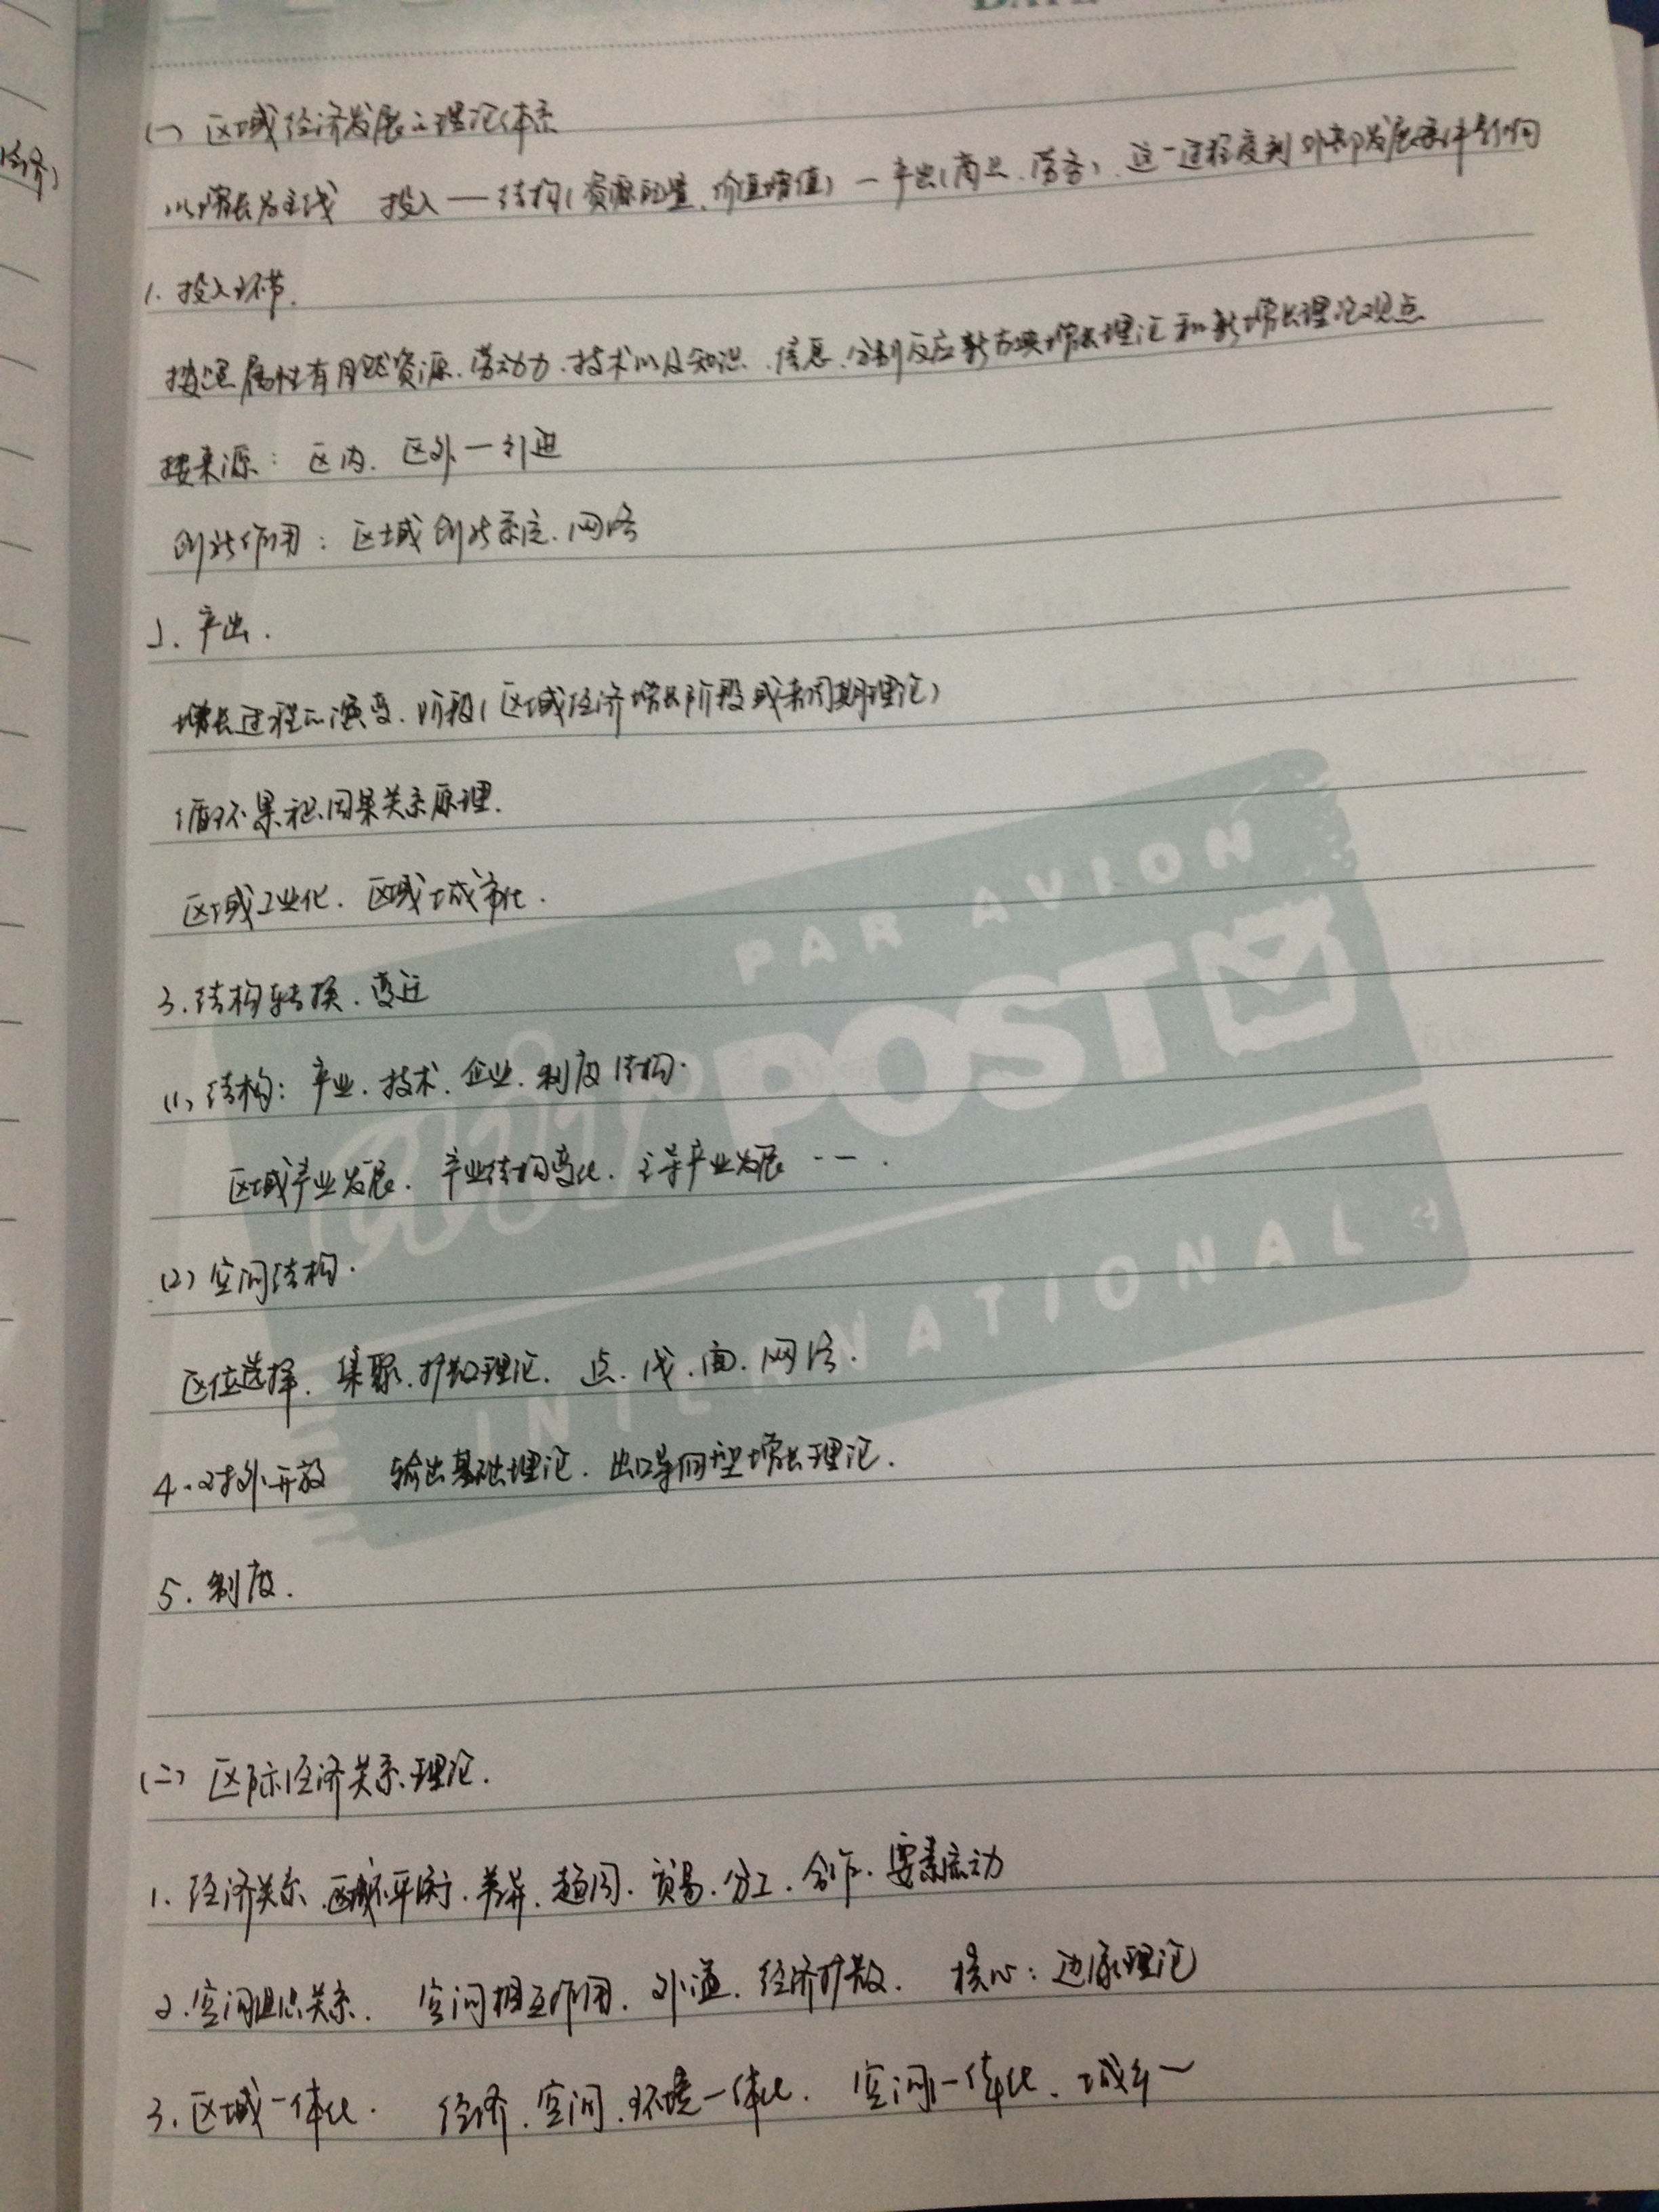 DATE
经济)
(一) 区域经济发展的理论体系
以增长为主线 投入—结构(资源配置、价值增值)—产出(商品、劳务)、这一过程受到外部发展条件影响
1. 投入环节.
按照属性有自然资源、劳动力、技术以及知识、信息、分别反应新古典增长理论和新增长理论观点
按来源: 区内、区外—引进
创新作用: 区域创新系统、网络
2. 产出.
增长过程的演变、阶段(区域经济增长阶段或者周期理论)
循环累积因果关系原理.
区域工业化、区域城市化.
3. 结构转换、变迁
(1) 结构: 产业、技术、企业、制度结构.
区域产业发展、产业结构变化、主导产业发展 ….
(2) 空间结构.
区位选择、集聚、扩散理论、点、线、面、网络.
4. 对外开放 输出基础理论、出口导向型增长理论.
5. 制度.
(二) 区际经济关系理论.
1. 经济关系、区域不平衡、差异、趋同、贸易、分工、合作、要素流动
2. 空间组织关系. 空间相互作用、外溢、经济扩散. 核心: 边缘理论
3. 区域一体化. 经济、空间、环境一体化. 空间一体化、城乡一
PAR AVION
air POST
INTERNATIONAL